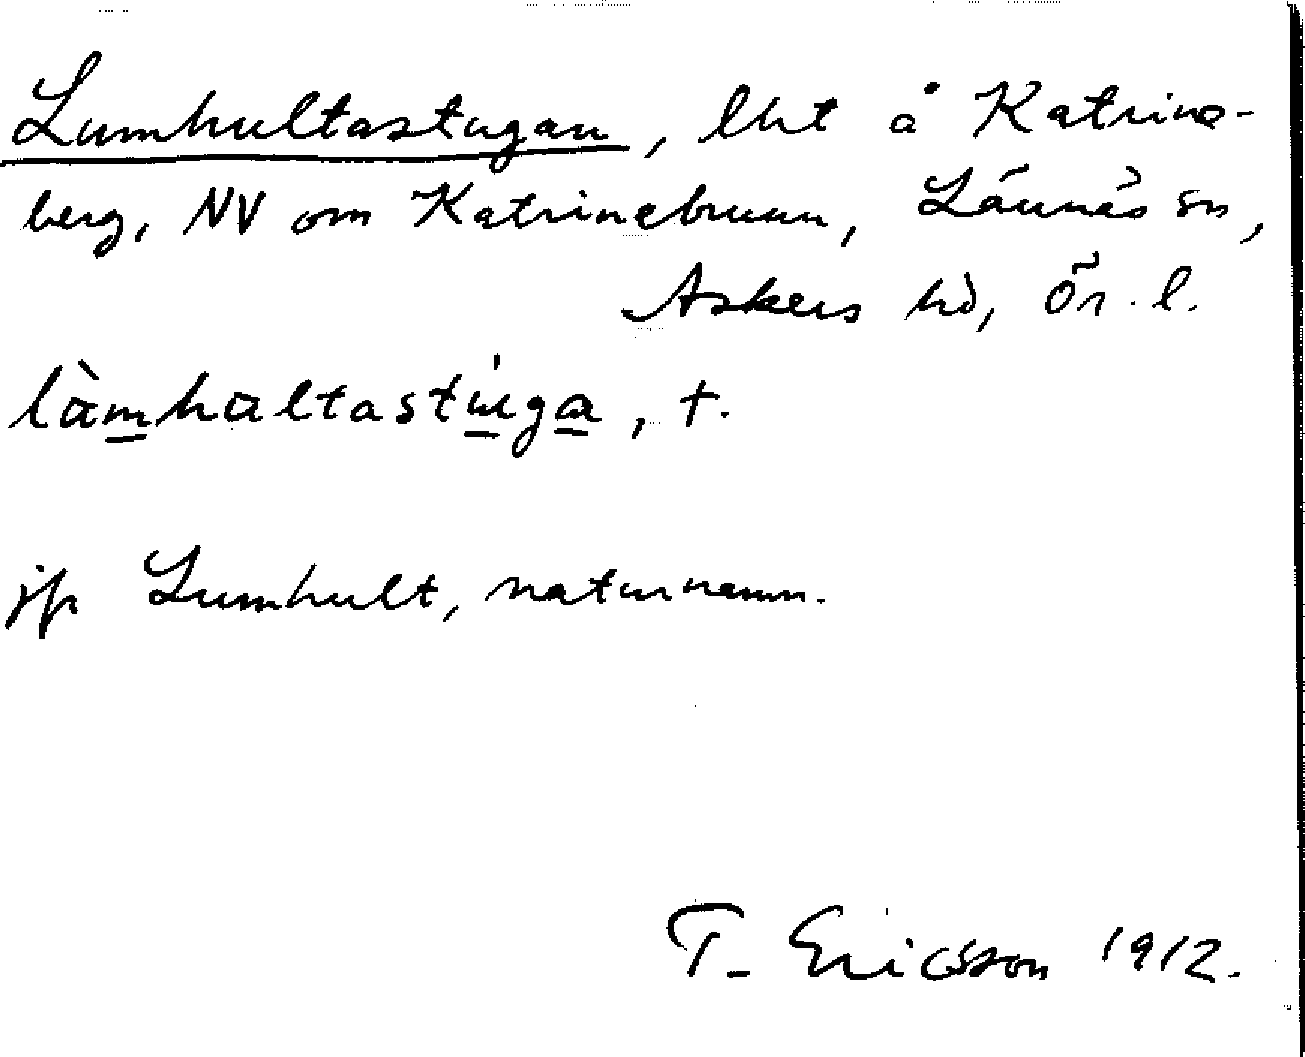 Lumhultastugan, lht å Katrine-
berg, NV om Katrinebrunn, Lännäs sn,
Askers hd, Ör. l.
làmhaltastúga, †.
jfr Lumhult, naturnamn.
T. Ericsson 1912.